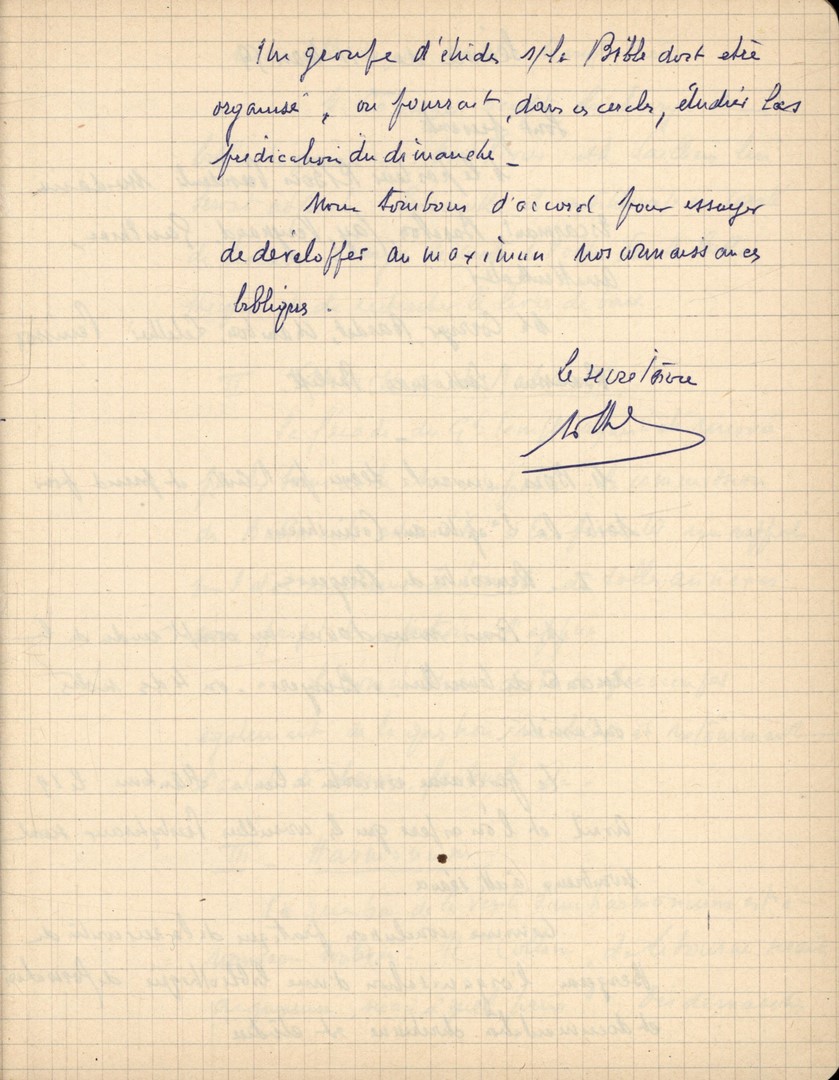 Un groupe d'études s/la Bible doit etre
organisé, on pourrait, dans ces cercles, étudier las
prédication du dimanche_
Nous tombons d'accord pour essayer
de developper au maximun nos connaissances
bibliques.
Le secretaire